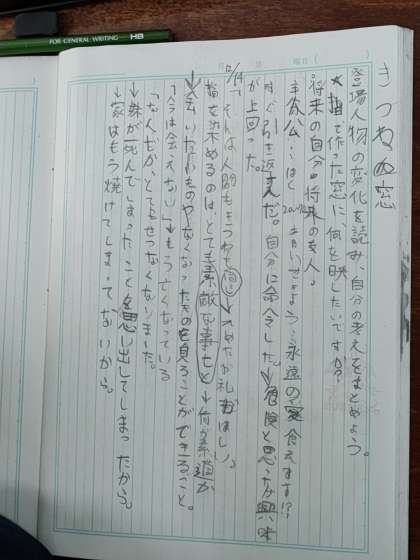 FOR GENERAL WRITING HB
月 日 曜日( )
きつねの窓
登場人物の変化を読み、自分の考えをまとめよう。
指で作った窓に、何を映したいですか?
将来の自分・将来の友人。
主人公…ぼく
すぐ引き返すんだ。自分に命令した。→危険と思ったが興味
が上回った。
12/14
「そんは人間もきつねも
指を染めるのは、とても素敵な事だと→何が素敵か
→会いたいものやなくなったものを見ることができること。
「今は会えない」→もう亡くなっている
「なんだか、とてもせつなくなりました。
→妹が死んでしまったことを思い出してしまったから。
→家はもう焼けてしまってないから。